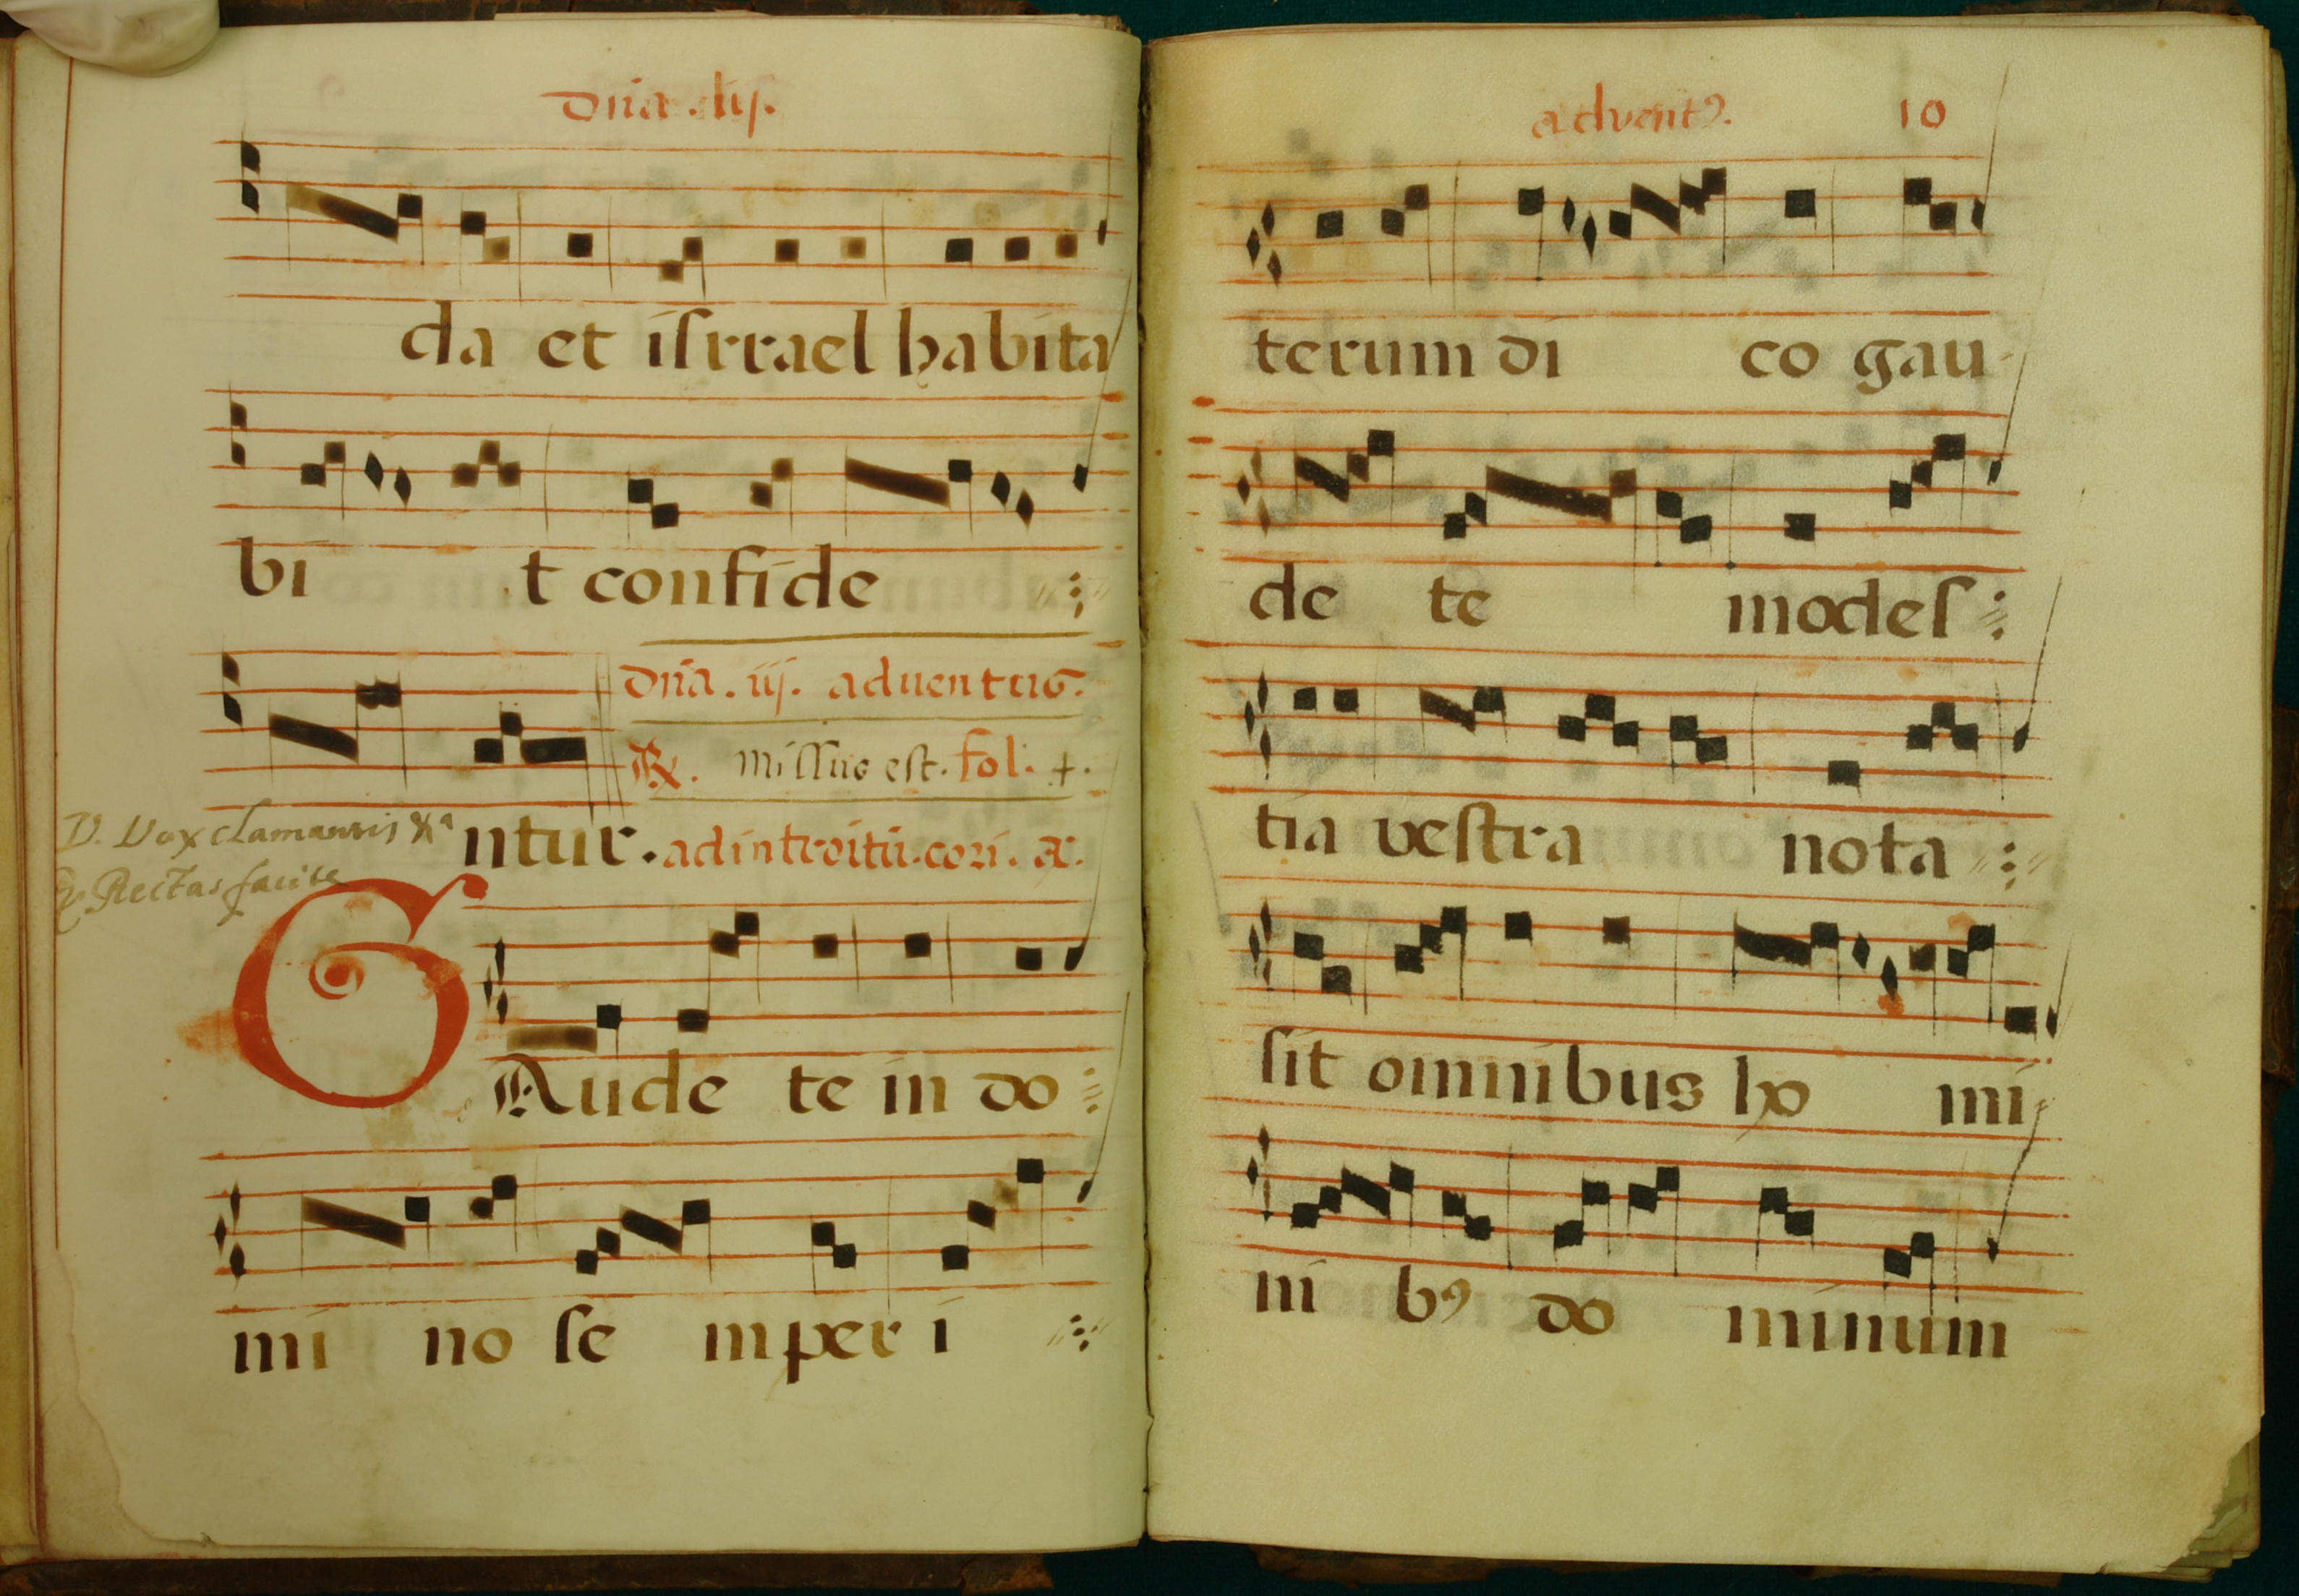 dña .iij.
da et isrrael habita
bi t confide
dña. iij. aduentus.
R. missus est. fol. +.
V. Vox clamantis
ntur. ad introitũ. cori. a.
Rectas facite
GAude te in do
mi no se mper i
advent9. 10
terum di co gau-
de te modes
tia vestra nota
sit omnibus ho mi
ni b9 do minum